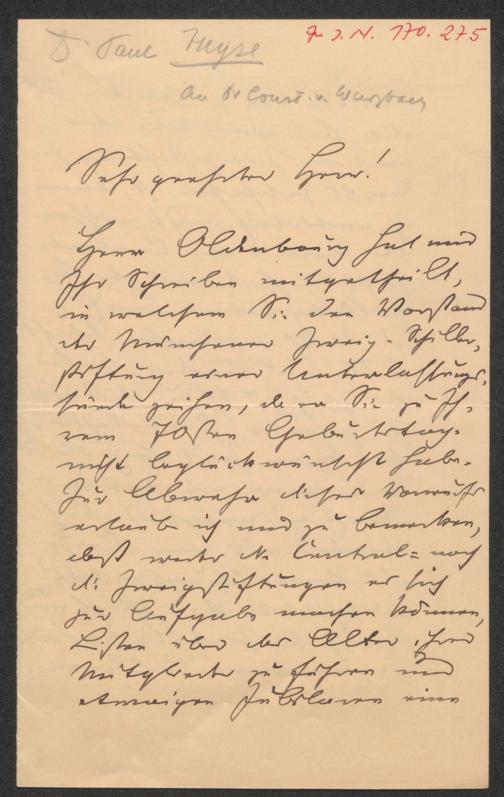 Dr Paul Heyse
J. N. 170.275
An Dr Const. v. Wurzbach
Sehr geehrter Herr!
Herr Oldenbourg hat mir
Ihr Schreiben mitgetheilt,
in welchem Sie den Vorstand
der Münchener Zweig-Schiller-
stiftung einer Unterlassungs-
sünde zeihen, da er Sie zu Ih-
rem 70sten Geburtstage
nicht beglückwünscht habe.
Zur Abwehr dieses Vorwurfs
erlaube ich mir zu bemerken,
daß weder die Central- noch
die Zweigstiftungen es sich
zur Aufgabe machen können,
Listen über das Alter ihrer
Mitglieder zu führen und
etwaigen Jubilaren eine